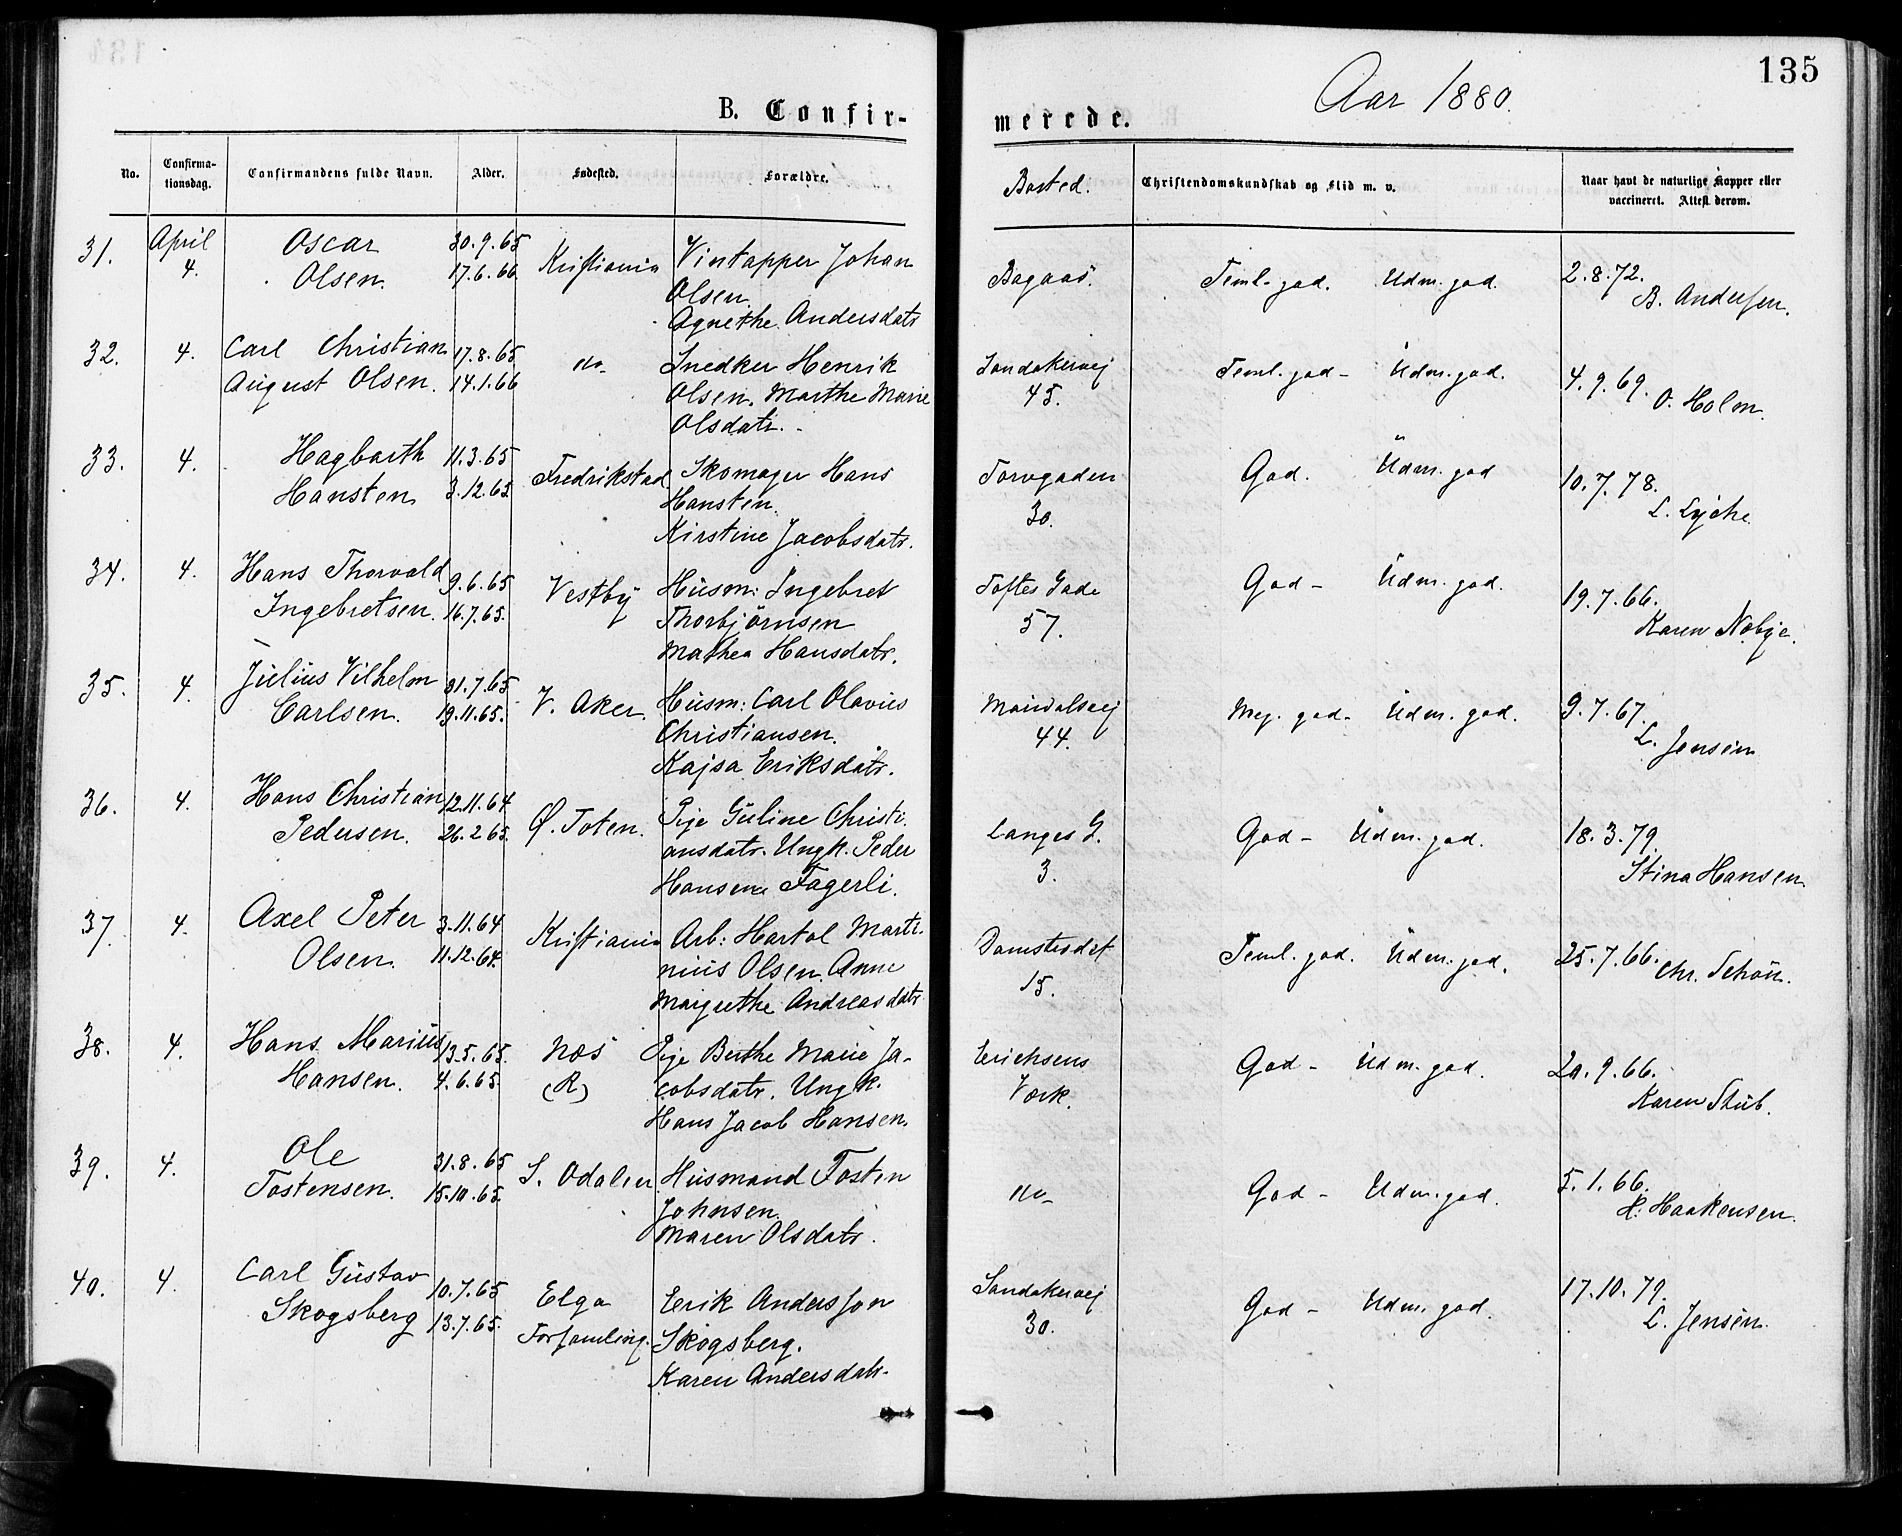 135
Aar 1880.
B. Confir-
merede.
No.
Confirma-
tionsdag.
Confirmandens fulde Navn.
Alder.
Fødested.
Forældre.
Bosted.
Christendomskundskab og Flid m. v.
Naar havt de naturlige Kopper eller
vaccineret. Attest derom.
31.
April
4.
Oscar
Olsen.
30.9.65
17.6.66
Kristiania
Vintapper Johan
Olsen.
Agnethe Andersdatr
Bagaas.
Teml. god. Udm. god.
2.8.72.
B. Andersen.
32.
4.
Carl Christian
August Olsen.
17.8.65
14.1.66
do
Snedker Henrik
Olsen. Marthe Marie
Olsdatr.
Sandakervej
45.
Teml. god - Udm. god.
4.9.69.
O. Holm.
33.
4.
Hagbarth
Hansten
11.3.65
3.12.65
Fredrikstad
Skomager Hans
Hansten.
Kirstine Jacobsdatr.
Torvgaden
30.
God. Udm. god
10.7.78.
L. Lyche
34.
4.
Hans Thorvald
Ingebretsen.
9.6.65
16.7.65.
Vestby
Husm: Ingebret
Thorbjörnsen
Mathea Hansdatr.
Toftes Gade
57.
God - Udm. god.
19.7.66.
Karen Nøbye.
35.
4.
Julius Vilhelm
Carlsen.
31.7.65
19.11.65.
V. Aker.
Husm: Carl Olavus
Christiansen.
Kajsa Eriksdatr.
Maridalsvej
44.
Meg. god - Udm. god.
9.7.67.
L. Jensen
36.
4.
Hans Christian
Pedersen.
12.11.64
26.2.65.
Ø. Toten.
Pige Guline Christi-
ansdatr. Ungk. Peder
Hansen Fagerli.
Langes G.
3.
God - Udm. god.
18.3.79.
Stina Hansen
37.
4.
Axel Peter
Olsen.
3.11.64
11.12.64.
Kristiania
Arb: Hartol Marti-
nius Olsen. Anne
Margrethe Andreasdatr
Damstredet
15.
Teml. god. Udm. god.
25.7.66.
Chr. Schön.
38.
4.
Hans Marius
Hansen.
13.5.65.
4.6.65.
Næs
(R)
Pige Berthe Marie Ja-
cobsdatr. Ungk.
Hans Jacob Hansen.
Erichsens
Værk.
God - Udm. god.
20.9.66.
Karen Stub.
39.
4.
Ole
Tostensen.
31.8.65
15.10.65.
S. Odalen
Husmand Tosten
Johnsen.
Maren Olsdatr.
do
God - Udm. god.
5.1.66.
H. Haakensen.
40.
4.
Carl Gustav
Skogsberg
10.7.65
13.7.65.
Elga
Forsamling.
Erik Andersson
Skogsberg.
Karen Andersdatr.
Sandakervej
30.
God - Udm. god.
17.10.79.
L. Jensen.